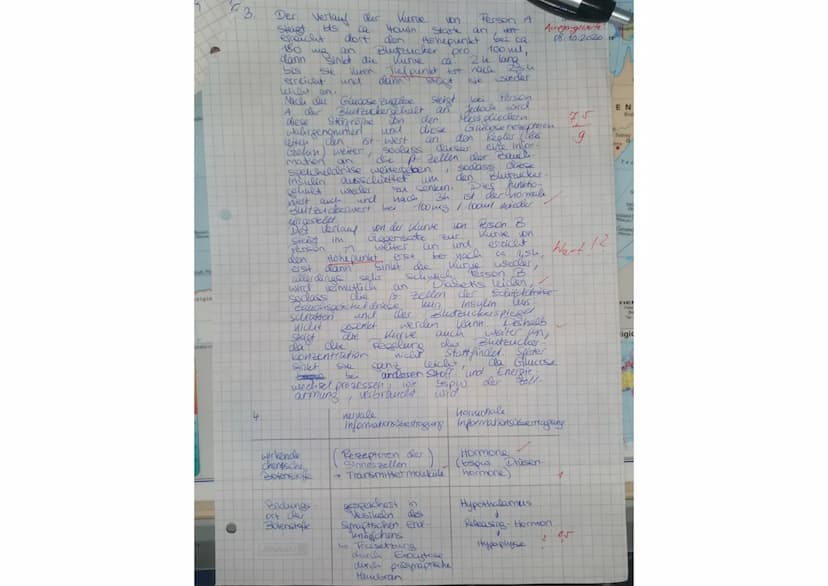 3. Der Verlauf der Kurve von Person A
steigt bis ca 40min stark an und
erreicht dort den Höhepunkt bei ca
180 mg an Blutzucker pro 100ml,
dann sinkt die Kurve ca 2h lang
bis sie ihren Tiefpunkt nach
erreicht und dann steigt sie wieder
leicht an.
Nach der Glucosezugabe steigt bei Person
A der Blutzuckergehalt an. Jedoch wird
diese Störgröße von den Messgliedern
wahrgenommen und diese Glucoserezeptoren
leiten den ist-Wert an den Regler
weiter, sodass dieser eine Infor-
mation an die β-Zellen der Bauch-
speicheldrüse weitergeben, sodass diese
Insulin ausschüttet um den Blutzucker-
gehalt wieder zu senken. Dies funktio-
niert auch und nach 3h ist der normale
Blutzuckerwert bei 100mg/100ml wieder
Der Verlauf von der Kurve von Person B
steigt im Gegensatz zur Kurve von
Person A weiter an und erreicht
den Höhepunkt erst bei nach ca 1,5h,
erst dann sinkt die Kurve wieder,
allerdings sehr Person B
wird vermutlich an Diabetes leiden,
sodass die β-Zellen der
kein Insulin aus-
schütten und der Blutzuckerspiegel
nicht gesenkt werden kann. Deshalb
steigt die Kurve auch weiter an,
da die Regelung der Blutzucker-
konzentration nicht stattfindet. Später
sinkt sie ganz leicht, da Glucose
bei anderen Stoff- und Energie-
wechselprozessen, wie bspw der Zell-
atmung, verbraucht wird.
Ausgangswerte
08.10.2020
7,5
9
4.
nervale
Informationsübertragung
Hormonale
Informationsübertragung
wirkende
chemische
Botenstoffe
(Rezeptoren der
Sinneszellen)
→ Transmittermoleküle
Hormone
(bspw Drüsen-
hormone)
1
Bildungs-
ort der
Botenstoffe
gespeichert in
Vesikeln des
synaptischen End-
knöpfchens
↳ Freisetzung
durch Exocytose
durch präsynaptische
Membran
Hypothalamus
↓
Releasing-Hormon
↓
Hypophyse
0,5